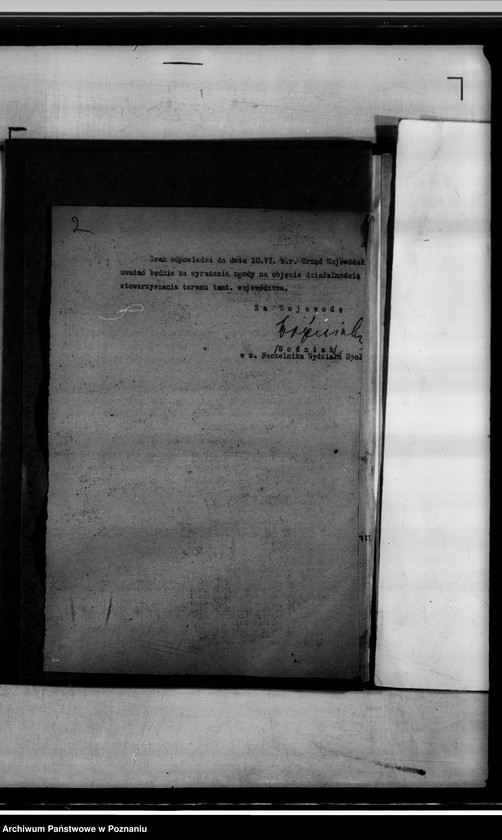 2
Brak odpowiedzi do dnia 10.VI. b.r. Urząd Wojewódzk
uważać będzie za wyrażenie zgody na objęcie działalnością
stowarzyszania terenu tamt. województwa.
Za Wojewodę
/Woźniak/
w z. Naczelnika Wydziału Społ
Archiwum Państwowe w Poznaniu